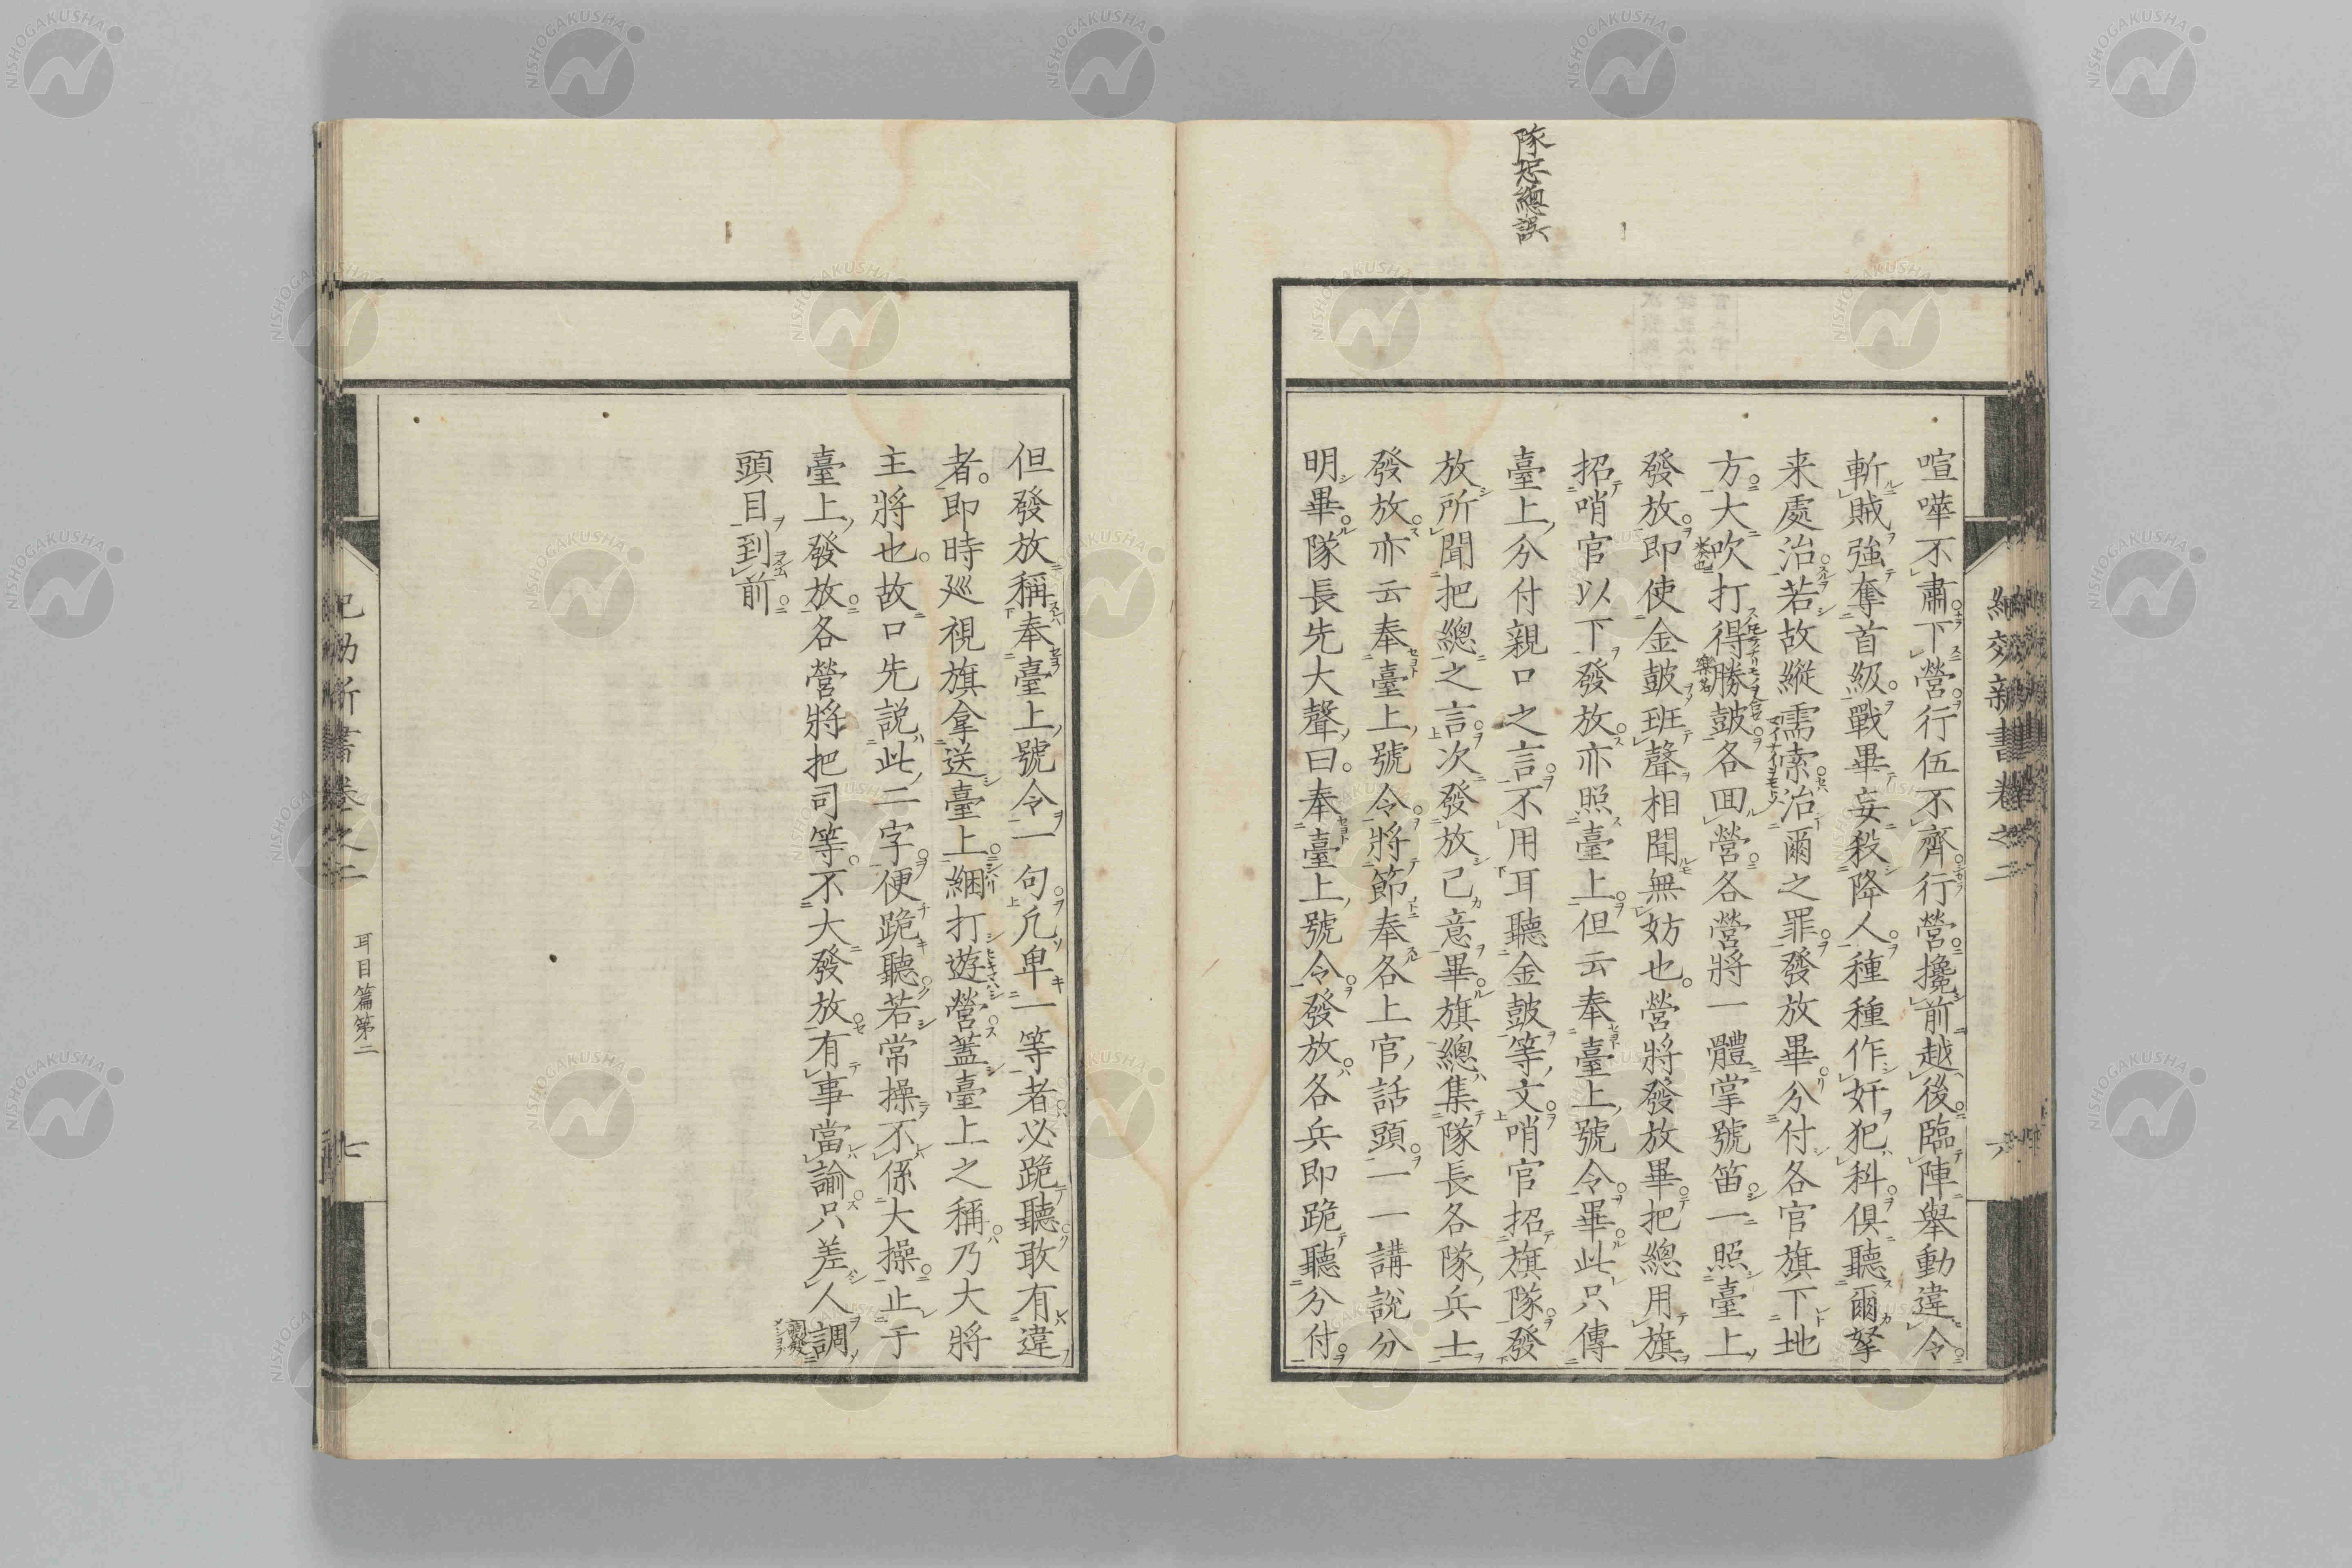 隊恐總誤
喧嘩不肅下營行伍不齊行營攙前越後臨陣舉動違令
斬賊強奪首級戰畢妄殺降人種種作奸犯科俱聽爾拏
来處治若故縱需索治爾之罪發放畢分付各官旗下地
方大吹打得勝皷各囬營各營將一體掌號笛一照臺上
發放即使金皷班聲相聞無妨也營將發放畢把總用旗
招哨官以下發放亦照臺上但云奉臺上號令畢此只傳
臺上分付親口之言不用耳聽金皷等文哨官招旗隊發
放所聞把總之言次發放己意畢旗總集隊長各隊兵士
發放亦云奉臺上號令將節奉各上官話頭一一講說分
明畢隊長先大聲曰奉臺上號令發放各兵即跪聽分付
但發放稱奉臺上號令一句凢卑一等者必跪聽敢有違
者即時廵視旗拿送臺上綑打遊營蓋臺上之稱乃大將
主將也故口先説此二字便跪聽若常操不係大操止于
臺上發放各營將把司等不大發放有事當諭只差人調
頭目到前
紀効新書卷之二
耳目篇第二
七